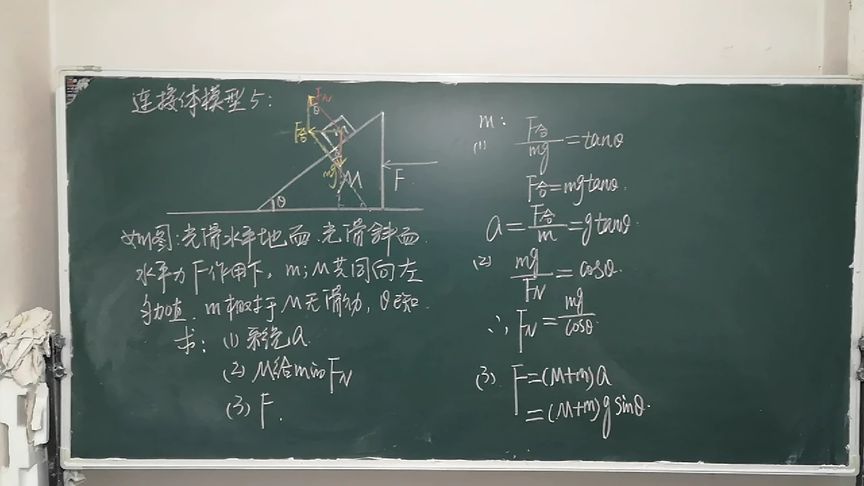 连接体模型5:
FN
θ
F合
m
mg
M
F
θ
如图:光滑水平地面.光滑斜面.
水平力F作用下,m;M共同向左
加速.m相对于M无滑动,θ已知.
求:(1)系统a.
(2)M给m的FN
(3)F.
m:
(1) F合/mg=tanθ
F合=mgtanθ.
a=F合/m=gtanθ.
(2) mg/FN=cosθ.
∴FN=mg/cosθ.
(3) F=(M+m)a
=(M+m)gsinθ.